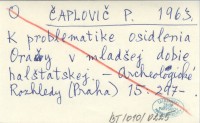 O ČAPLOVIČ P. 1963.
K problematike osídlenia
Oravy v mladšej dobie
halštatskej. – Archeologické
Rozhledy (Praha) 15: 297–.